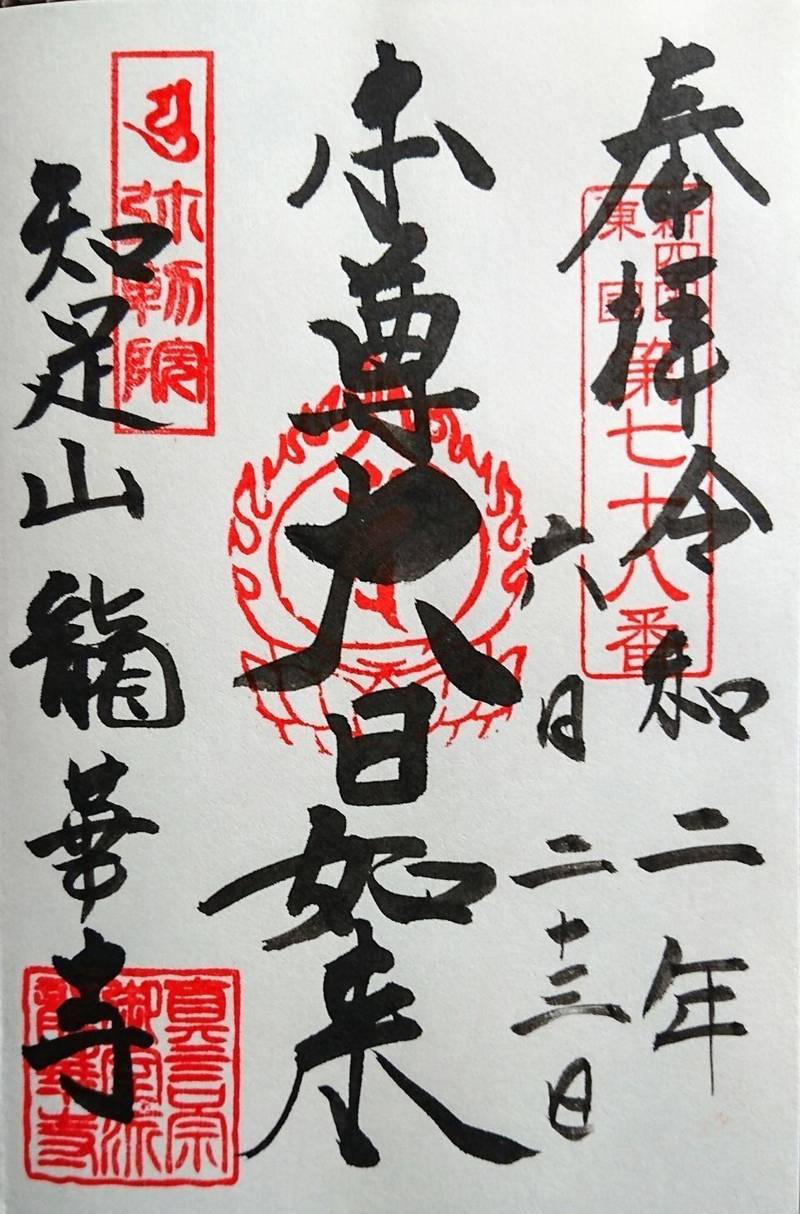 奉拝 令和二年
六月二十三日
新四国
東国
第七十八番
本尊大日如来
弥勒院
知足山 龍華寺
真言宗
御室派
龍華寺